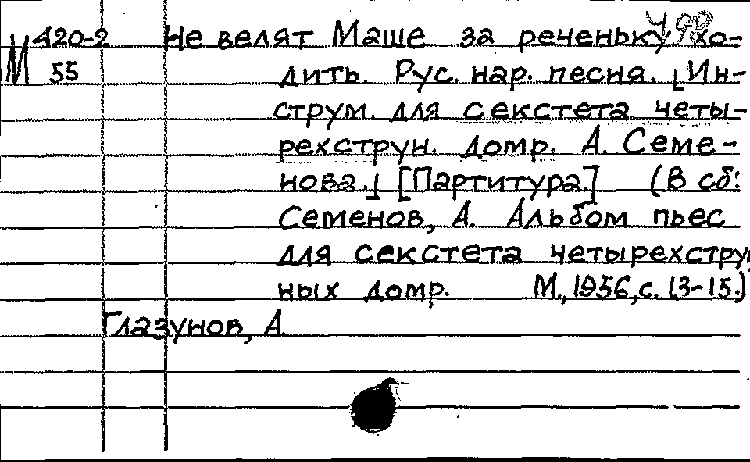 М 420-2 Не велят Маше за реченьку хо-
55 дить. Рус. нар. песня. [Ин-
струм. для секстета четы-
рехструн. домр. А. Семе-
нова.] [Партитура.] (В сб:
Семенов, А. Альбом пьес
для секстета четырехстру
ных домр. М., 1956, с. 13-15.)
Глазунов, А.